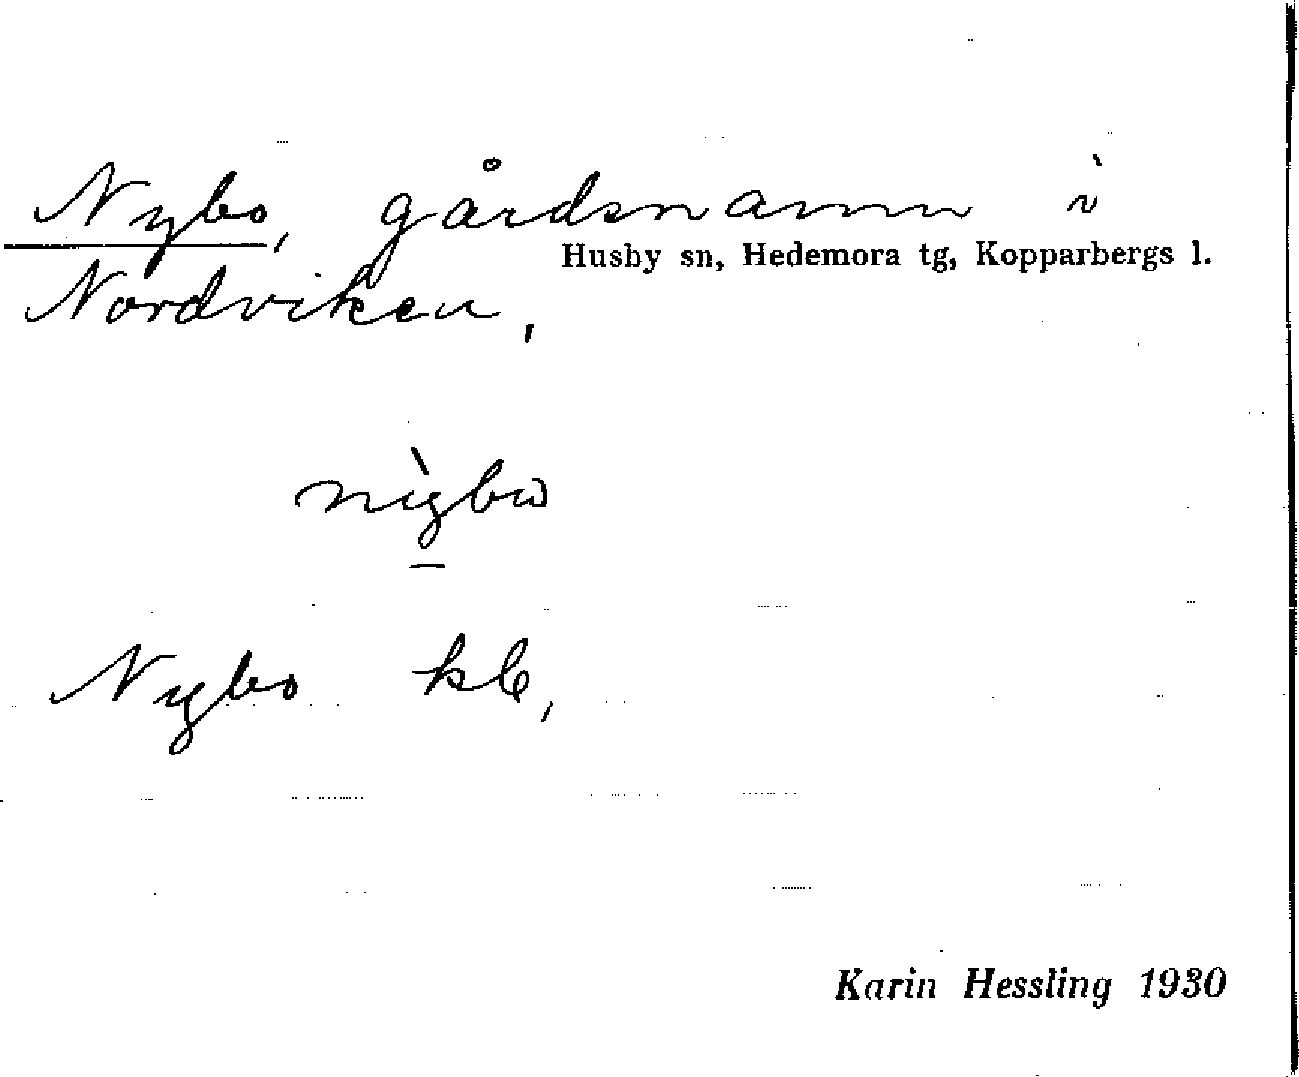 Nybo, gårdsnamn i
Husby sn, Hedemora tg, Kopparbergs l.
Nordviken,
Nybo
Karin Hessling 1930